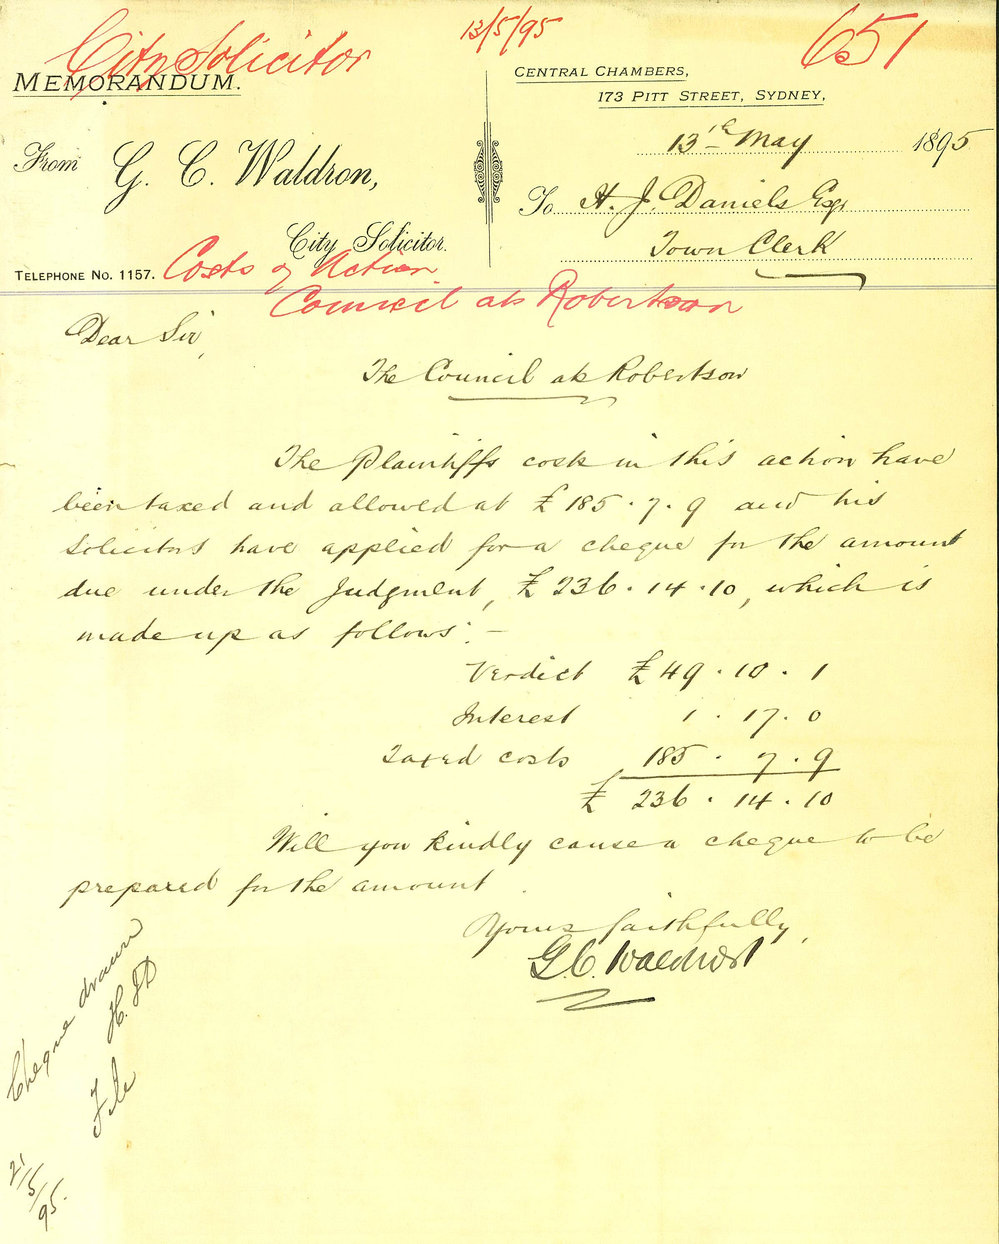 City Solicitor
13/5/95
651
MEMORANDUM.
CENTRAL CHAMBERS,
173 PITT STREET, SYDNEY,
13th May 1895
From G. C. Waldron,
City Solicitor.
To H. J. Daniels Esqr
Town Clerk
TELEPHONE No. 1157.
Costs of Action
Council ats Robertson
Dear Sir,
The Council ats Robertson
The Plaintiffs costs in this action have
been taxed and allowed at £185.7.9 and his
solicitors have applied for a cheque for the amount
due under the Judgment, £236.14.10, which is
made up as follows:-
Verdict £49.10.1
Interest 1.17.0
Taxed costs 185.7.9
£236.14.10
Will you kindly cause a cheque to be
prepared for the amount.
Yours faithfully,
G. C. Waldron
Cheque drawn
H.J.D
File
21/5/95.